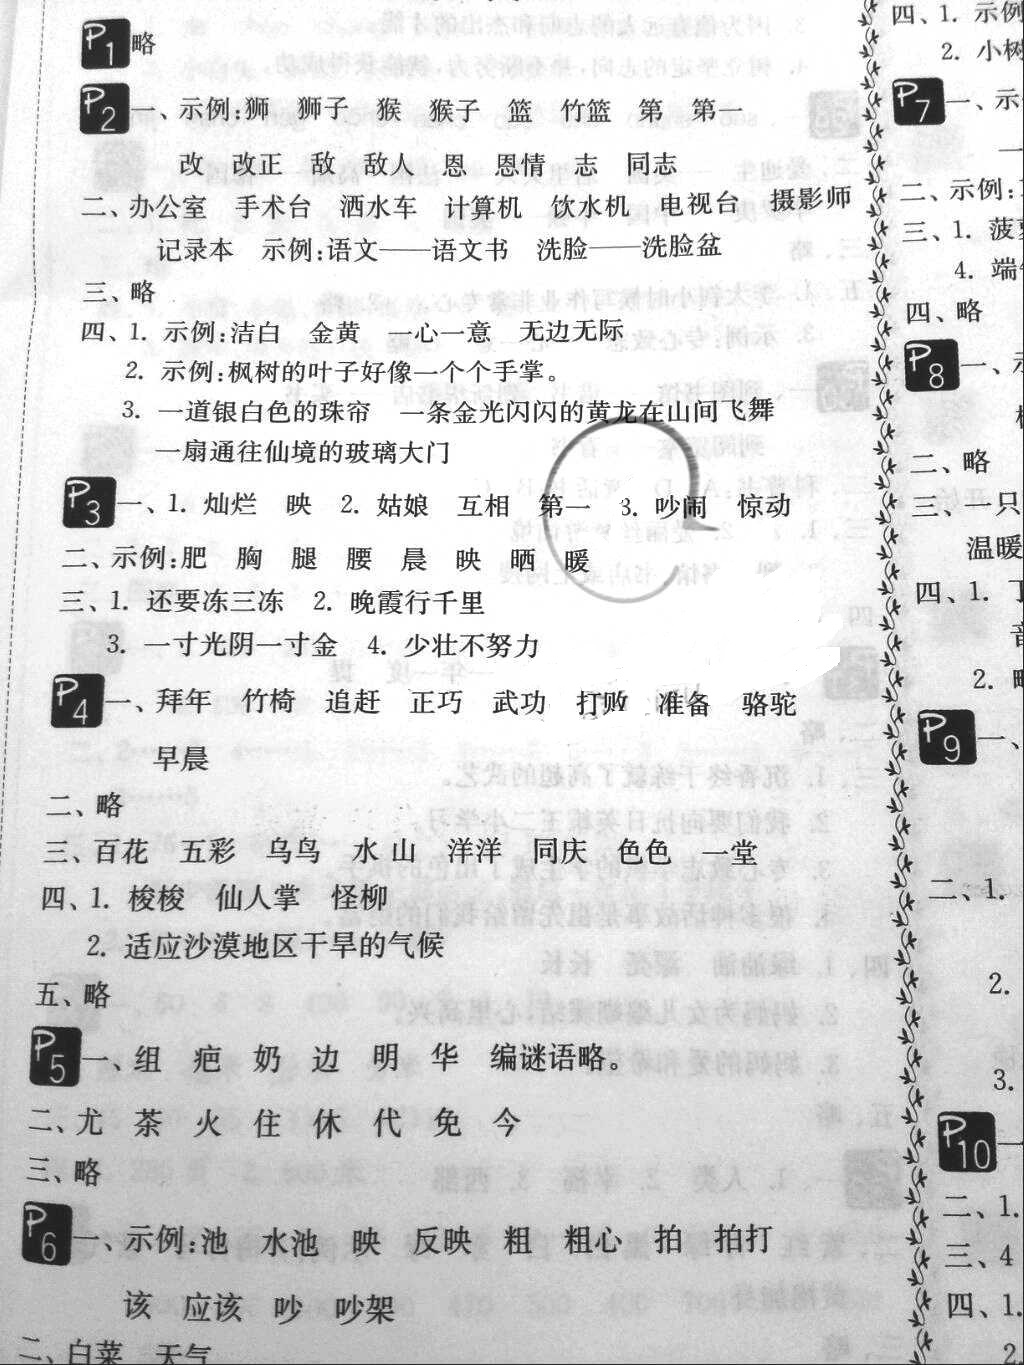 P1 略
P2 一、示例:狮 狮子 猴 猴子 篮 竹篮 第 第一
改 改正 敌 敌人 恩 恩情 志 同志
二、办公室 手术台 洒水车 计算机 饮水机 电视台 摄影师
记录本 示例:语文——语文书 洗脸——洗脸盆
三、略
四、1. 示例:洁白 金黄 一心一意 无边无际
2. 示例:枫树的叶子好像一个个手掌。
3. 一道银白色的珠帘 一条金光闪闪的黄龙在山间飞舞
一扇通往仙境的玻璃大门
P3 一、1. 灿烂 映 2. 姑娘 互相 第一 3. 吵闹 惊动
二、示例:肥 胸 腿 腰 晨 映 晒 暖
三、1. 还要冻三冻 2. 晚霞行千里
3. 一寸光阴一寸金 4. 少壮不努力
P4 一、拜年 竹椅 追赶 正巧 武功 打败 准备 骆驼
早晨
二、略
三、百花 五彩 乌鸟 水 山 洋洋 同庆 色色 一堂
四、1. 梭梭 仙人掌 怪柳
2. 适应沙漠地区干旱的气候
五、略
P5 一、组 疤 奶 边 明 华 编谜语略。
二、尤 茶 火 住 休 代 免 今
三、略
P6 一、示例:池 水池 映 反映 粗 粗心 拍 拍打
该 应该 吵 吵架
二、白菜 天气
四、1. 示例
2. 小树
P7 一、示
一
二、示例:
三、1. 菠
4. 端
四、略
P8 一、
二、略
三、一只
温暖
四、1.
2.
P9 一、
二、1.
2.
3.
P10 一
二、1.
三、4
四、1.
2.